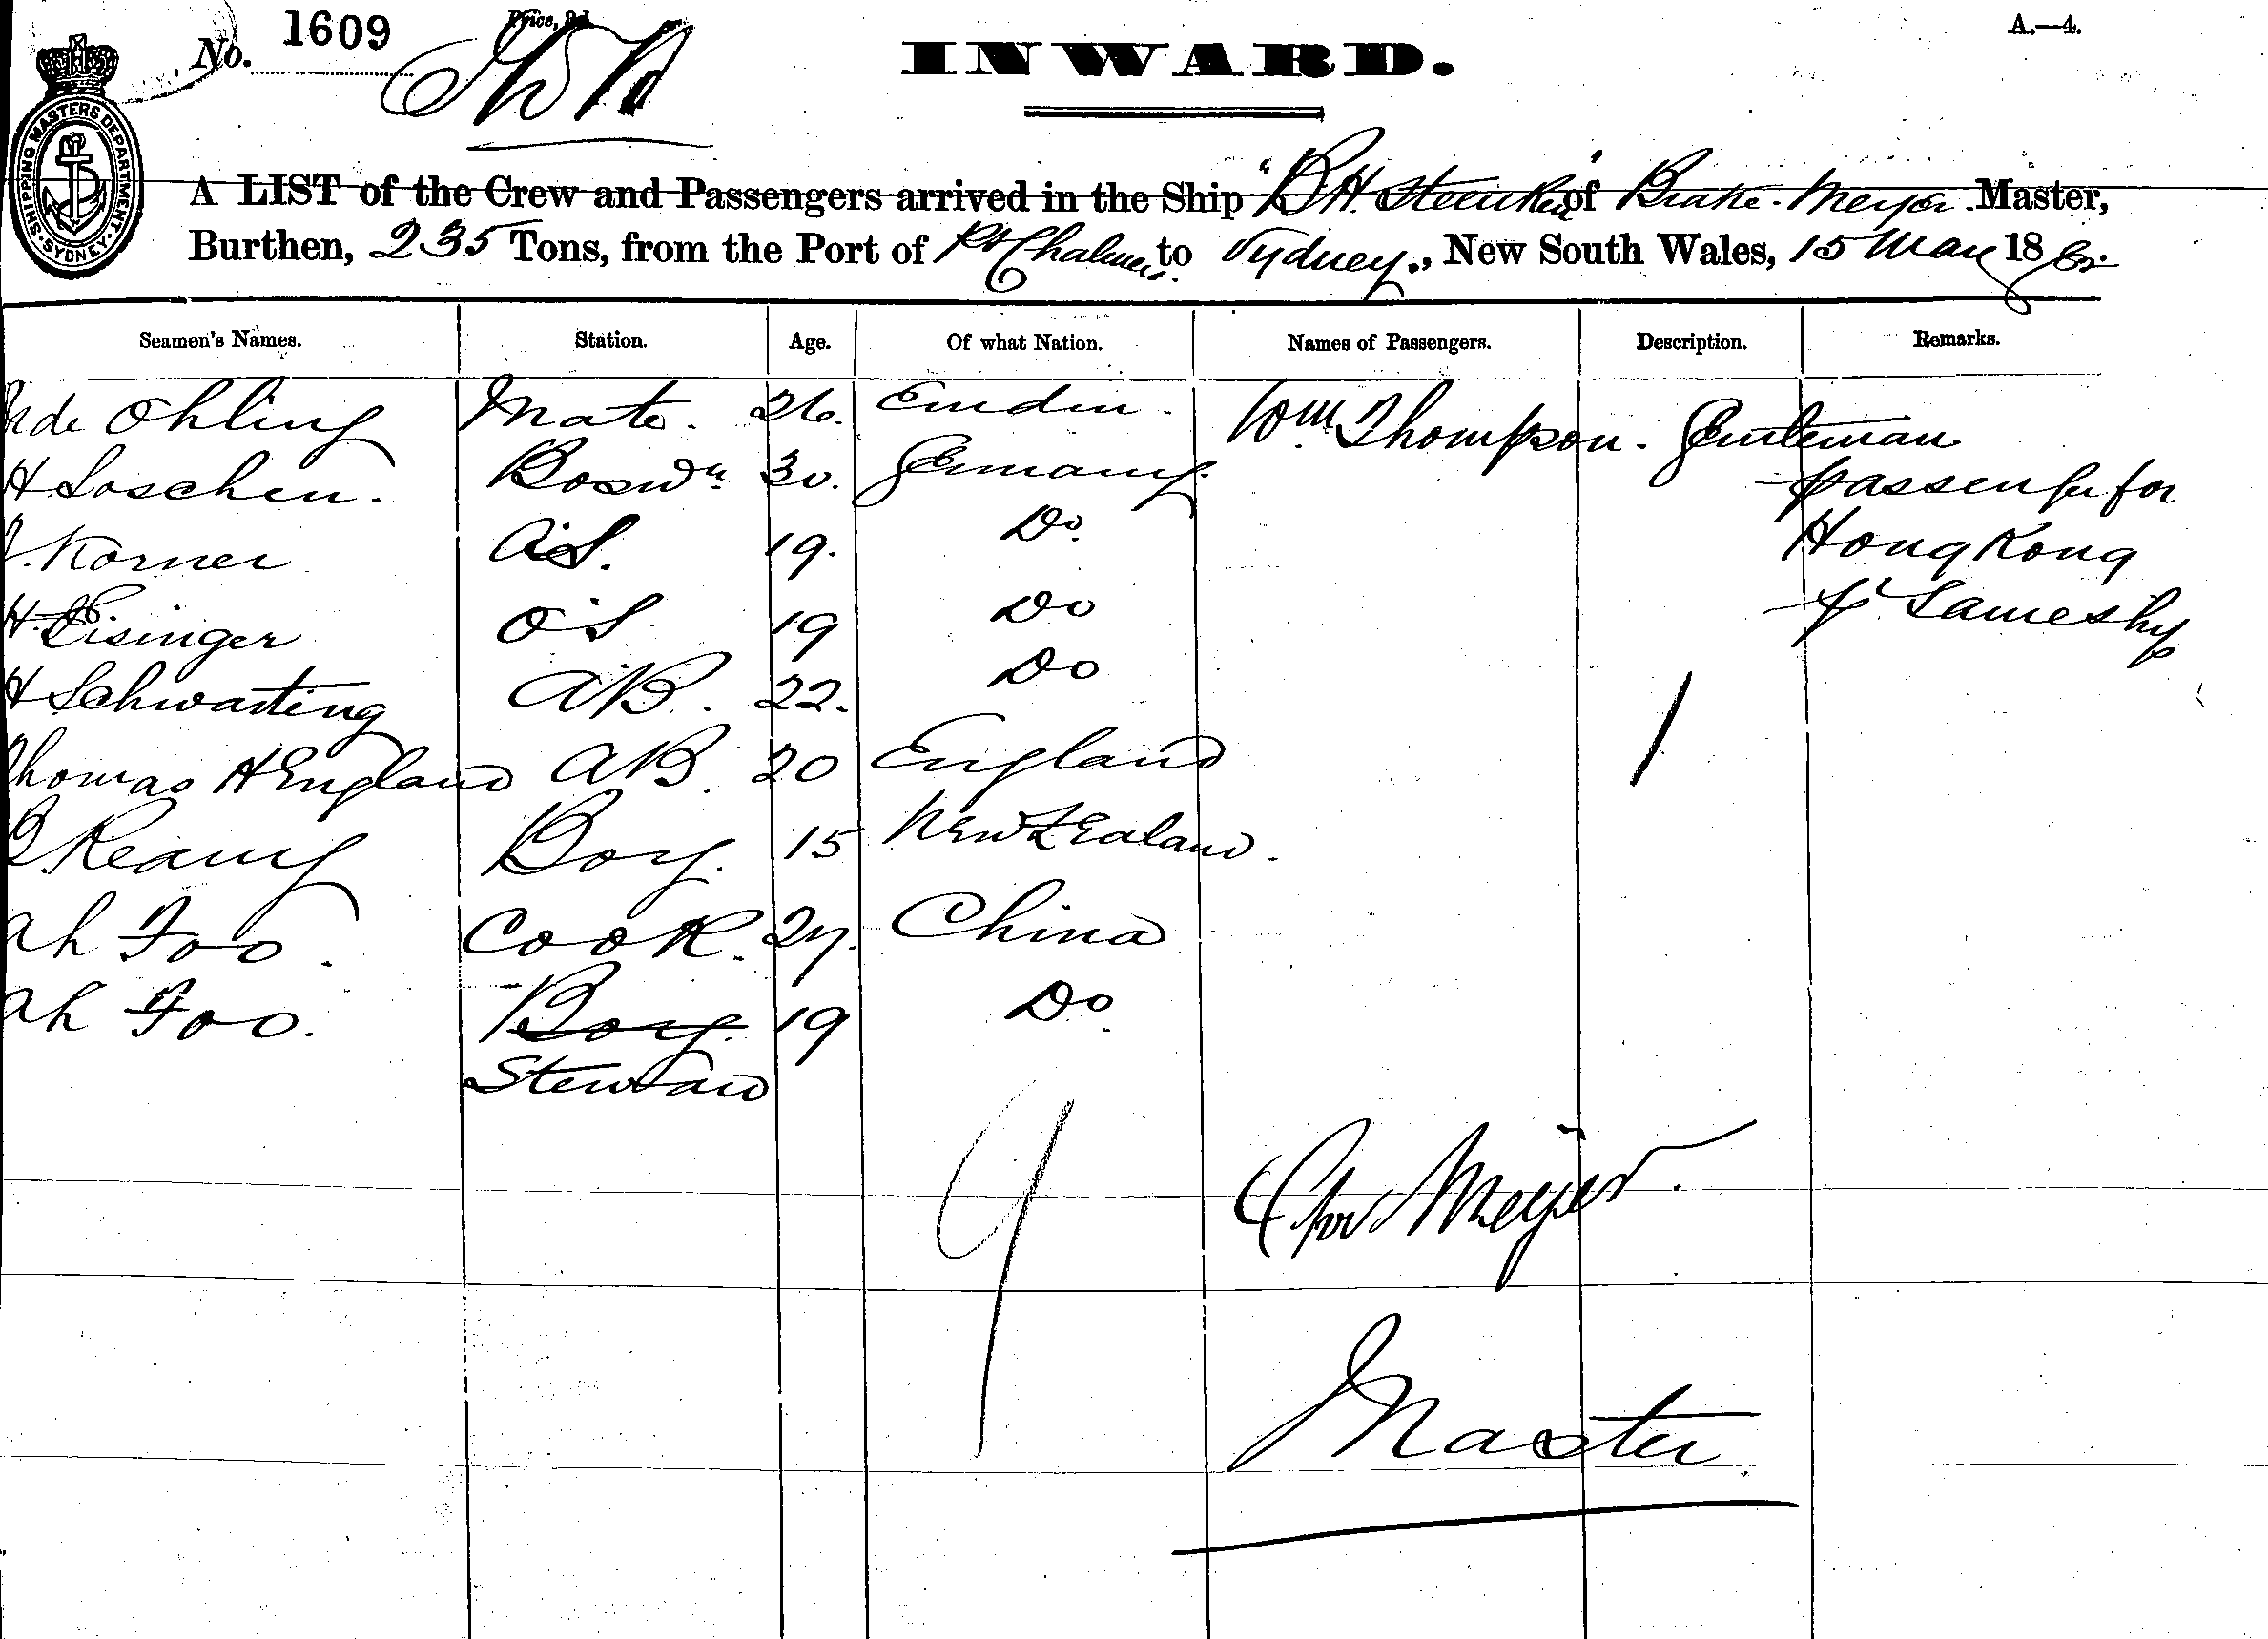 No. 1609
Price, 3d.
A.—4.
INWARD.
SHIPPING MASTERS DEPARTMENT · SYDNEY ·
A LIST of the Crew and Passengers arrived in the Ship "B.H. Steencken" of Brake. Meyer. Master,
Burthen, 235 Tons, from the Port of Pt Chalmers. to Sydney., New South Wales, 15 May 18
Seamen's Names. Station. Age. Of what Nation. Names of Passengers. Description. Remarks.
Ohling Mate. 26. Emden. Wm Thompson. Gentleman
H Loschen. Boswn 30. Germany. passenger for
Korner AS. 19. Do. Hong Kong
H. Eisinger OS 19 Do Same ship
H Schwarting AB. 22. Do
Thomas H England AB. 20 England
Reany Boy. 15 New Zealand.
Ah Foo. Cook. 27. China
Ah Foo. Boy. 19 Do.
Steward
9
1
Meyer.
Master